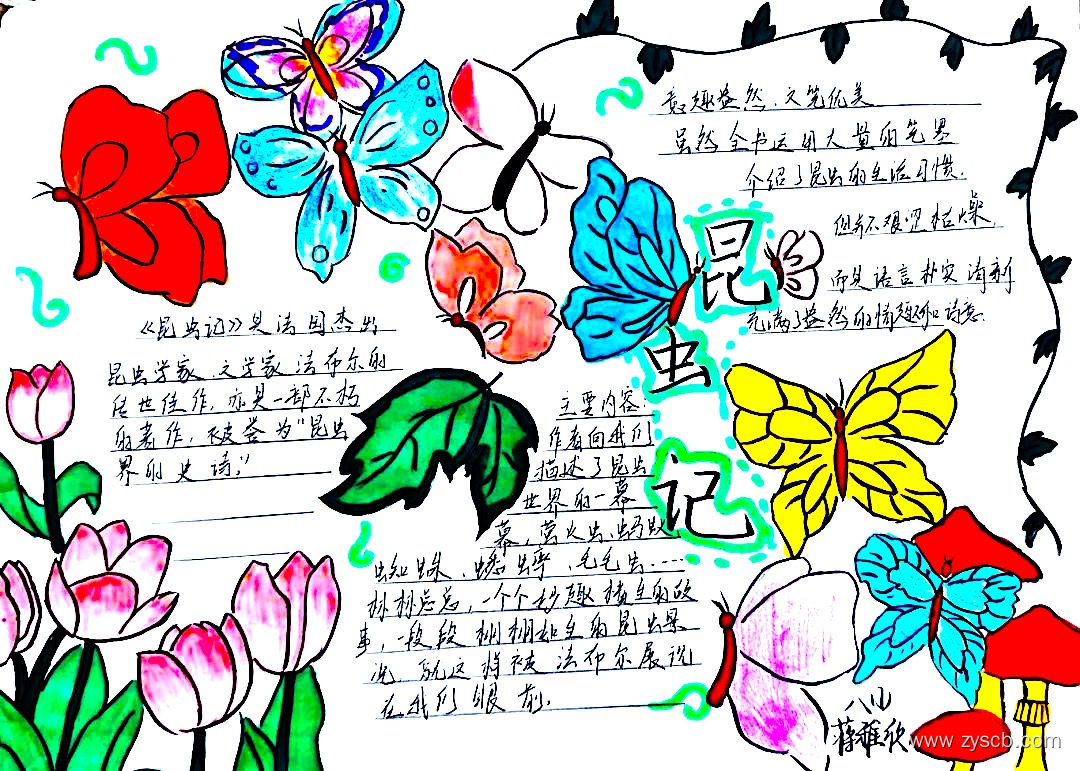 意趣盎然、文笔优美
虽然全书运用大量的笔墨
介绍了昆虫的生活习惯.
但并不艰涩枯燥
而是语言朴实清新
充满了盎然的情趣和诗意.
昆
虫
记
《昆虫记》是法国杰出
昆虫学家、文学家 法布尔的
传世佳作，亦是一部不朽
的著作，被誉为"昆虫
界的史诗。"
主要内容:
作者向我们
描述了昆虫
世界的一幕
幕，萤火虫、蚂蚁
蜘蛛、蟋蟀、毛毛虫……
林林总总，一个个妙趣横生的故
事，一段段栩栩如生的昆虫景
况 就这样被法布尔展现
在我们眼前.
八(1)
蒋雅欣
www.zyscb.com